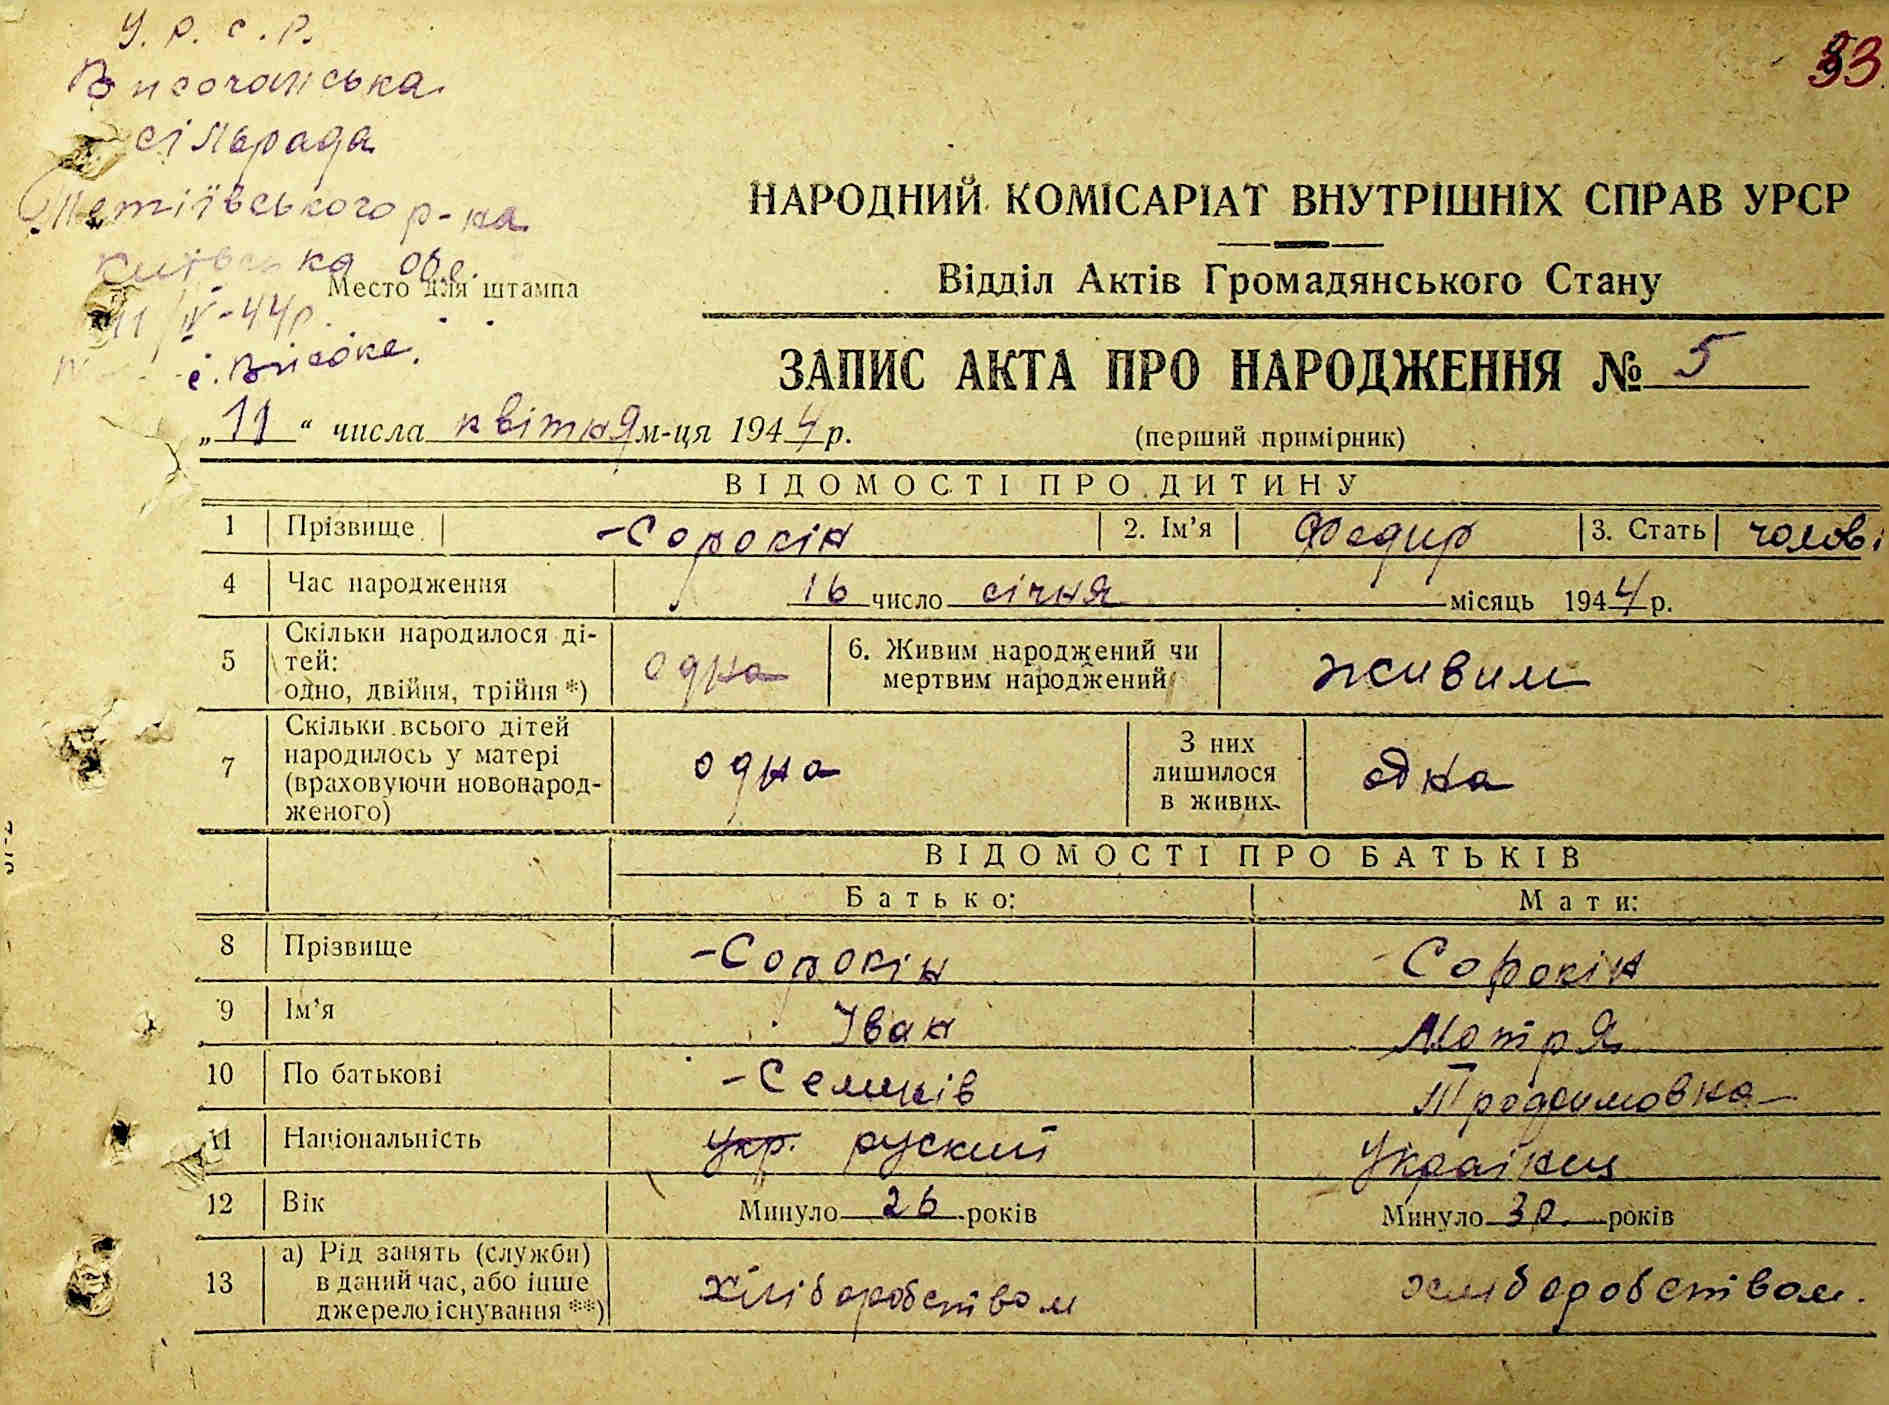 У. Р. С. Р.
33.
Височанська
сільрада
Тетіївського р-на
Київська обл.
Место для штампа
11/IV-44р.
с. Високе.
НАРОДНИЙ КОМІСАРІАТ ВНУТРІШНІХ СПРАВ УРСР
Відділ Актів Громадянського Стану
ЗАПИС АКТА ПРО НАРОДЖЕННЯ № 5
„11“ числа квітня м-ця 1944 р.
(перший примірник)
ВІДОМОСТІ ПРО ДИТИНУ
1 Прізвище -Сорокін 2. Ім'я Федир 3. Стать чолові
4 Час народження 16 число січня місяць 1944 р.
5 Скільки народилося ді-
тей:
одно, двійня, трійня *) одна
6. Живим народжений чи
мертвим народжений живим
7 Скільки всього дітей
народилось у матері
(враховуючи новонарод-
женого) одна
З них
лишилося
в живих одна
ВІДОМОСТІ ПРО БАТЬКІВ
Батько: Мати:
8 Прізвище -Сорокін Сорокін
9 Ім'я Іван Мотря
10 По батькові
11 Національність укр. руский Українц
12 Вік Минуло 26 років Минуло 3р. років
13 а) Рід занять (служби)
в даний час, або інше
джерело існування **) хліборобством хліборобством.